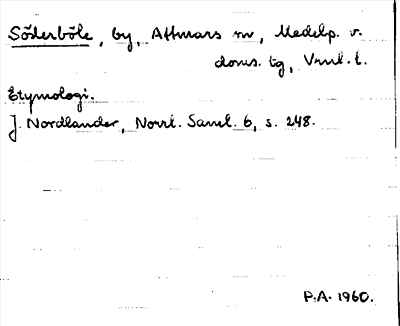 Söderböle, by, Attmars sn, Medelp. v.
doms. tg, Vrnl. l.
Etymologi.
J. Nordlander, Norrl. Saml. 6, s. 248.
P.A. 1960.